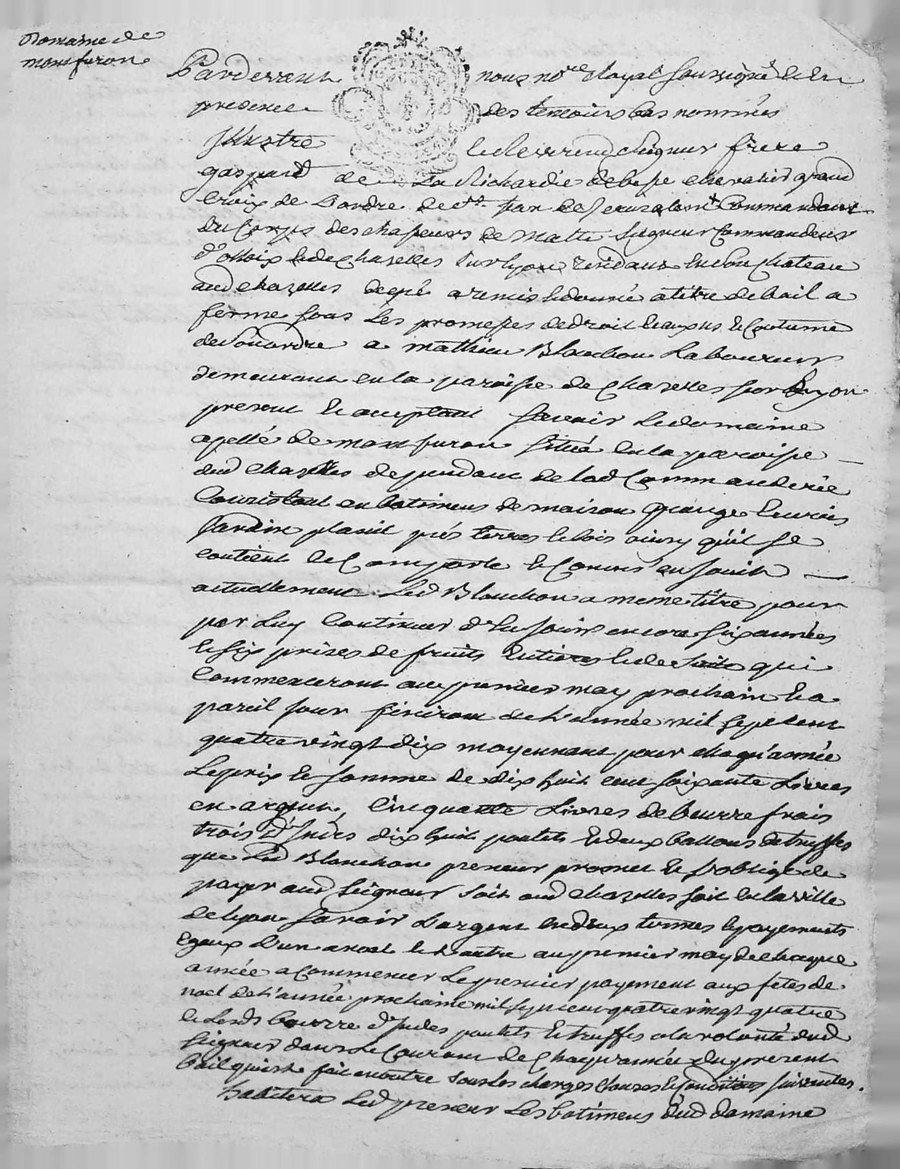 Domaine de
montfuron
Pardevant nous no.re Royal soussigné et en
presence des temoins bas nommés
Illustre le Reverend seigneur frere
gaspard de La Richardie de besse chevalier grand
Croix de Lordre de St. jean de Jerusalem Commandant
du Corps des chasseurs de malte seigneur Commandeur
d'olloix et de chazelles sur lyon residant en son chateau
aud chazelles de gré a remis et donné a titre de bail a
ferme sous les promesses de droit et aux us et Coutume
a mathieu Blanchon Laboureur
demeurant en la paroisse de Chazelles sur Lyon
present et acceptant savoir Le domaine
apellé de montfuron situé en la paroisse
dud chazelles dependant de lad Commanderie
Consistant en batimens de maison grange Ecuries
Jardin plassit prés terres et bois ainsy qu'il se
contient et Comporte et Comme en Jouit
actuellement Led Blanchon a meme titre pour
par Luy Continuer d'en Jouir encore six années
et six prises de fruits entieres et de suite qui
Commenceront au premier may prochain et a
pareil jour finiront de L'année mil sept cent
quatre vingt dix moyennant pour chaqu'année
Le prix et somme de dix huit cent soixante Livres
en argent, Cinquante Livres de beurre frais
trois d'Indes dix huit poulets et deux ballons de truffes
que Led Blanchon preneur promet et s'oblige de
payer aud seigneur soit aud chazelles soit en la ville
de lyon savoir Largent en deux termes et payements
Egaux L'un a noel et L'autre au premier may de chaque
année a Commencer Le premier payement aux fetes de
noel de L'année prochaine mil sept cent quatre vingt quatre
et Lesds beurre d'Indes poulets et truffes a la volonté dud
seigneur dans Le Courant de Chaqu'année du present
Bail qui est fait en outre sous les charges clauses et Conditions suivantes.
habitera Led preneur Les batimens dud domaine